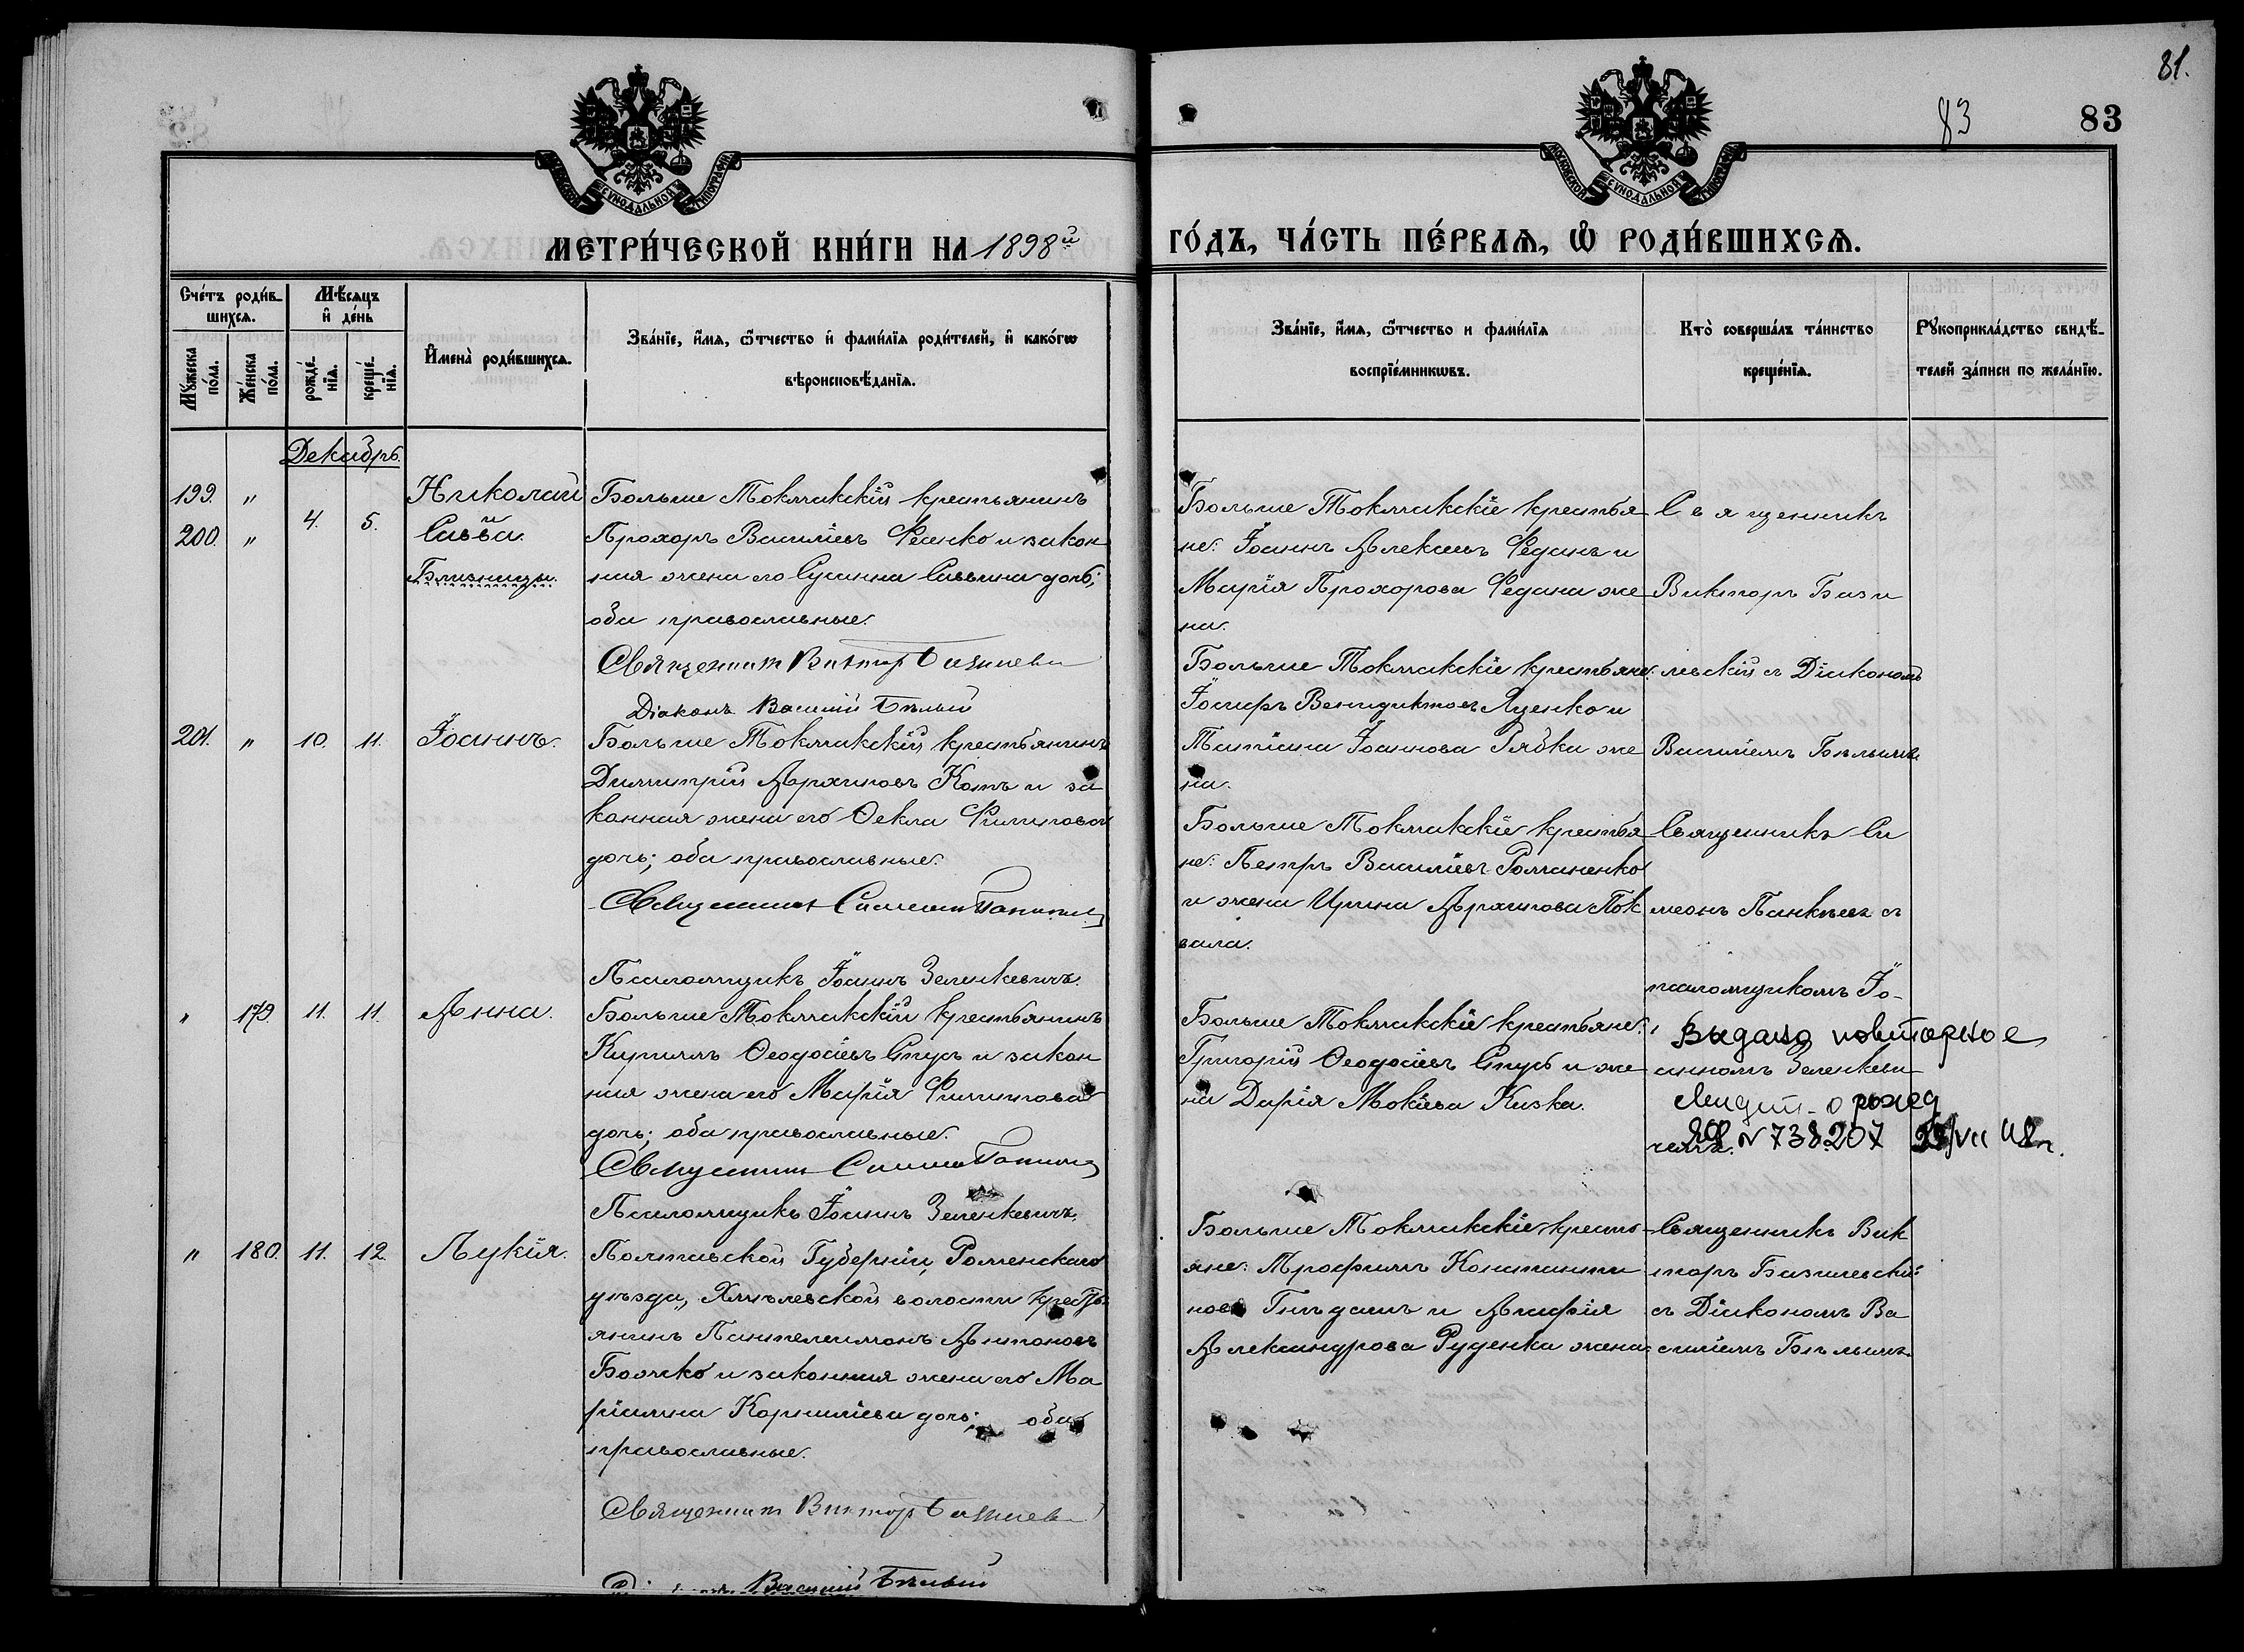 81.
83
83
МОСКОВСКОЙ СѴНОДАЛЬНОЙ ТИПОГРАФІИ
МОСКОВСКОЙ СѴНОДАЛЬНОЙ ТИПОГРАФІИ
МЕТРИ́ЧЕСКОЙ КНИ́ГИ НА 1898й
ГО́ДЪ, ЧА́СТЬ ПЕ́РВАѦ, Ѡ҆ РОДИ́ВШИХСѦ.
Сче́тъ роди́в-
шихсѧ.
Мꙋ́жеска по́ла.
Же́нска по́ла.
Мѣ́сѧцъ
и҆ де́нь
рожде́-
нїѧ.
креще́-
нїѧ.
И҆мена̀ роди́вшихсѧ.
Зва́нїе, и҆́мѧ, ѻ҆́тчество и҆ фами́лїѧ роди́телей, и҆ како́гѡ
вѣроисповѣ́данїѧ.
Зва́нїе, и҆́мѧ, ѻ҆́тчество и фами́лїѧ
воспрїе́мникѡвъ.
Кто̀ соверша́лъ та́инство
креще́нїѧ.
Рꙋкоприкла́дство свидѣ́-
телей за́писи по жела́нїю.
Декабрь.
199. "
200. "
4. 5.
Николай
и
Савва.
Близнецы.
Больше Токмакскій крестьянинъ
Прохоръ Василіевъ Фесенко и закон
ная жена его Сусанна Саввина дочь;
оба православные.
Священник Виктор Базилев
Діаконъ Василій Бѣлый
Больше Токмакскіе крестья
не: Іоаннъ Алексіевъ Феданъ и
Марія Прохорова Федана же
на.
Больше Токмакскіе крестьяне:
Іосифъ Венидиктовъ Яценко и
Татіана Іоаннова Рябка же
на.
Священникъ
Викторъ Бази
левскій съ Діакономъ
Василіемъ Бѣлымъ
201. " 10. 11. Іоаннъ.
Больше Токмакскій крестьянинъ
Димитрій Архиповъ Котъ и за
конная жена его Ѳекла Филиппова
дочь; оба православные.
Псаломщикъ Іоаннъ Зеленкевичъ.
Больше Токмакскіе крестья
не: Петръ Василіевъ Романенко
и жена Ирина Архипова Пок
вала.
Священникъ Си
меонъ Панкѣевъ съ
псаломщикомъ Іо-
анномъ Зеленкеви-
чемъ.
" 179. 11. 11. Анна.
Больше Токмакскій крестьянинъ
Кириллъ Ѳеодосіевъ Стусъ и закон
ная жена его Марія Филиппова
дочь; оба православные.
Псаломщикъ Іоаннъ Зеленкевичъ.
Больше Токмакскіе крестьяне:
Григорій Ѳеодосіевъ Стусъ и же
на Дарія Мокіева Кизка.
Видано повиторное
о рожд
N 738207
" 180. 11. 12. Лукія.
Полтавской Губерніи, Роменскаго
уѣзда, Хмѣлевской волости кресть
янинъ Пантелеимонъ Антоновъ
Божко и законная жена его Ма
ріамна Корниліева дочь; оба
православные.
Священник Виктор Базилев
Василій Бѣлый
Больше Токмакскіе кресть-
яне: Трофимъ Константи
новъ Гнѣдашъ и Агафія
Александрова Руденка жена.
Священникъ Вик
торъ Базилевскій
съ Діакономъ Ва
силіемъ Бѣлымъ.